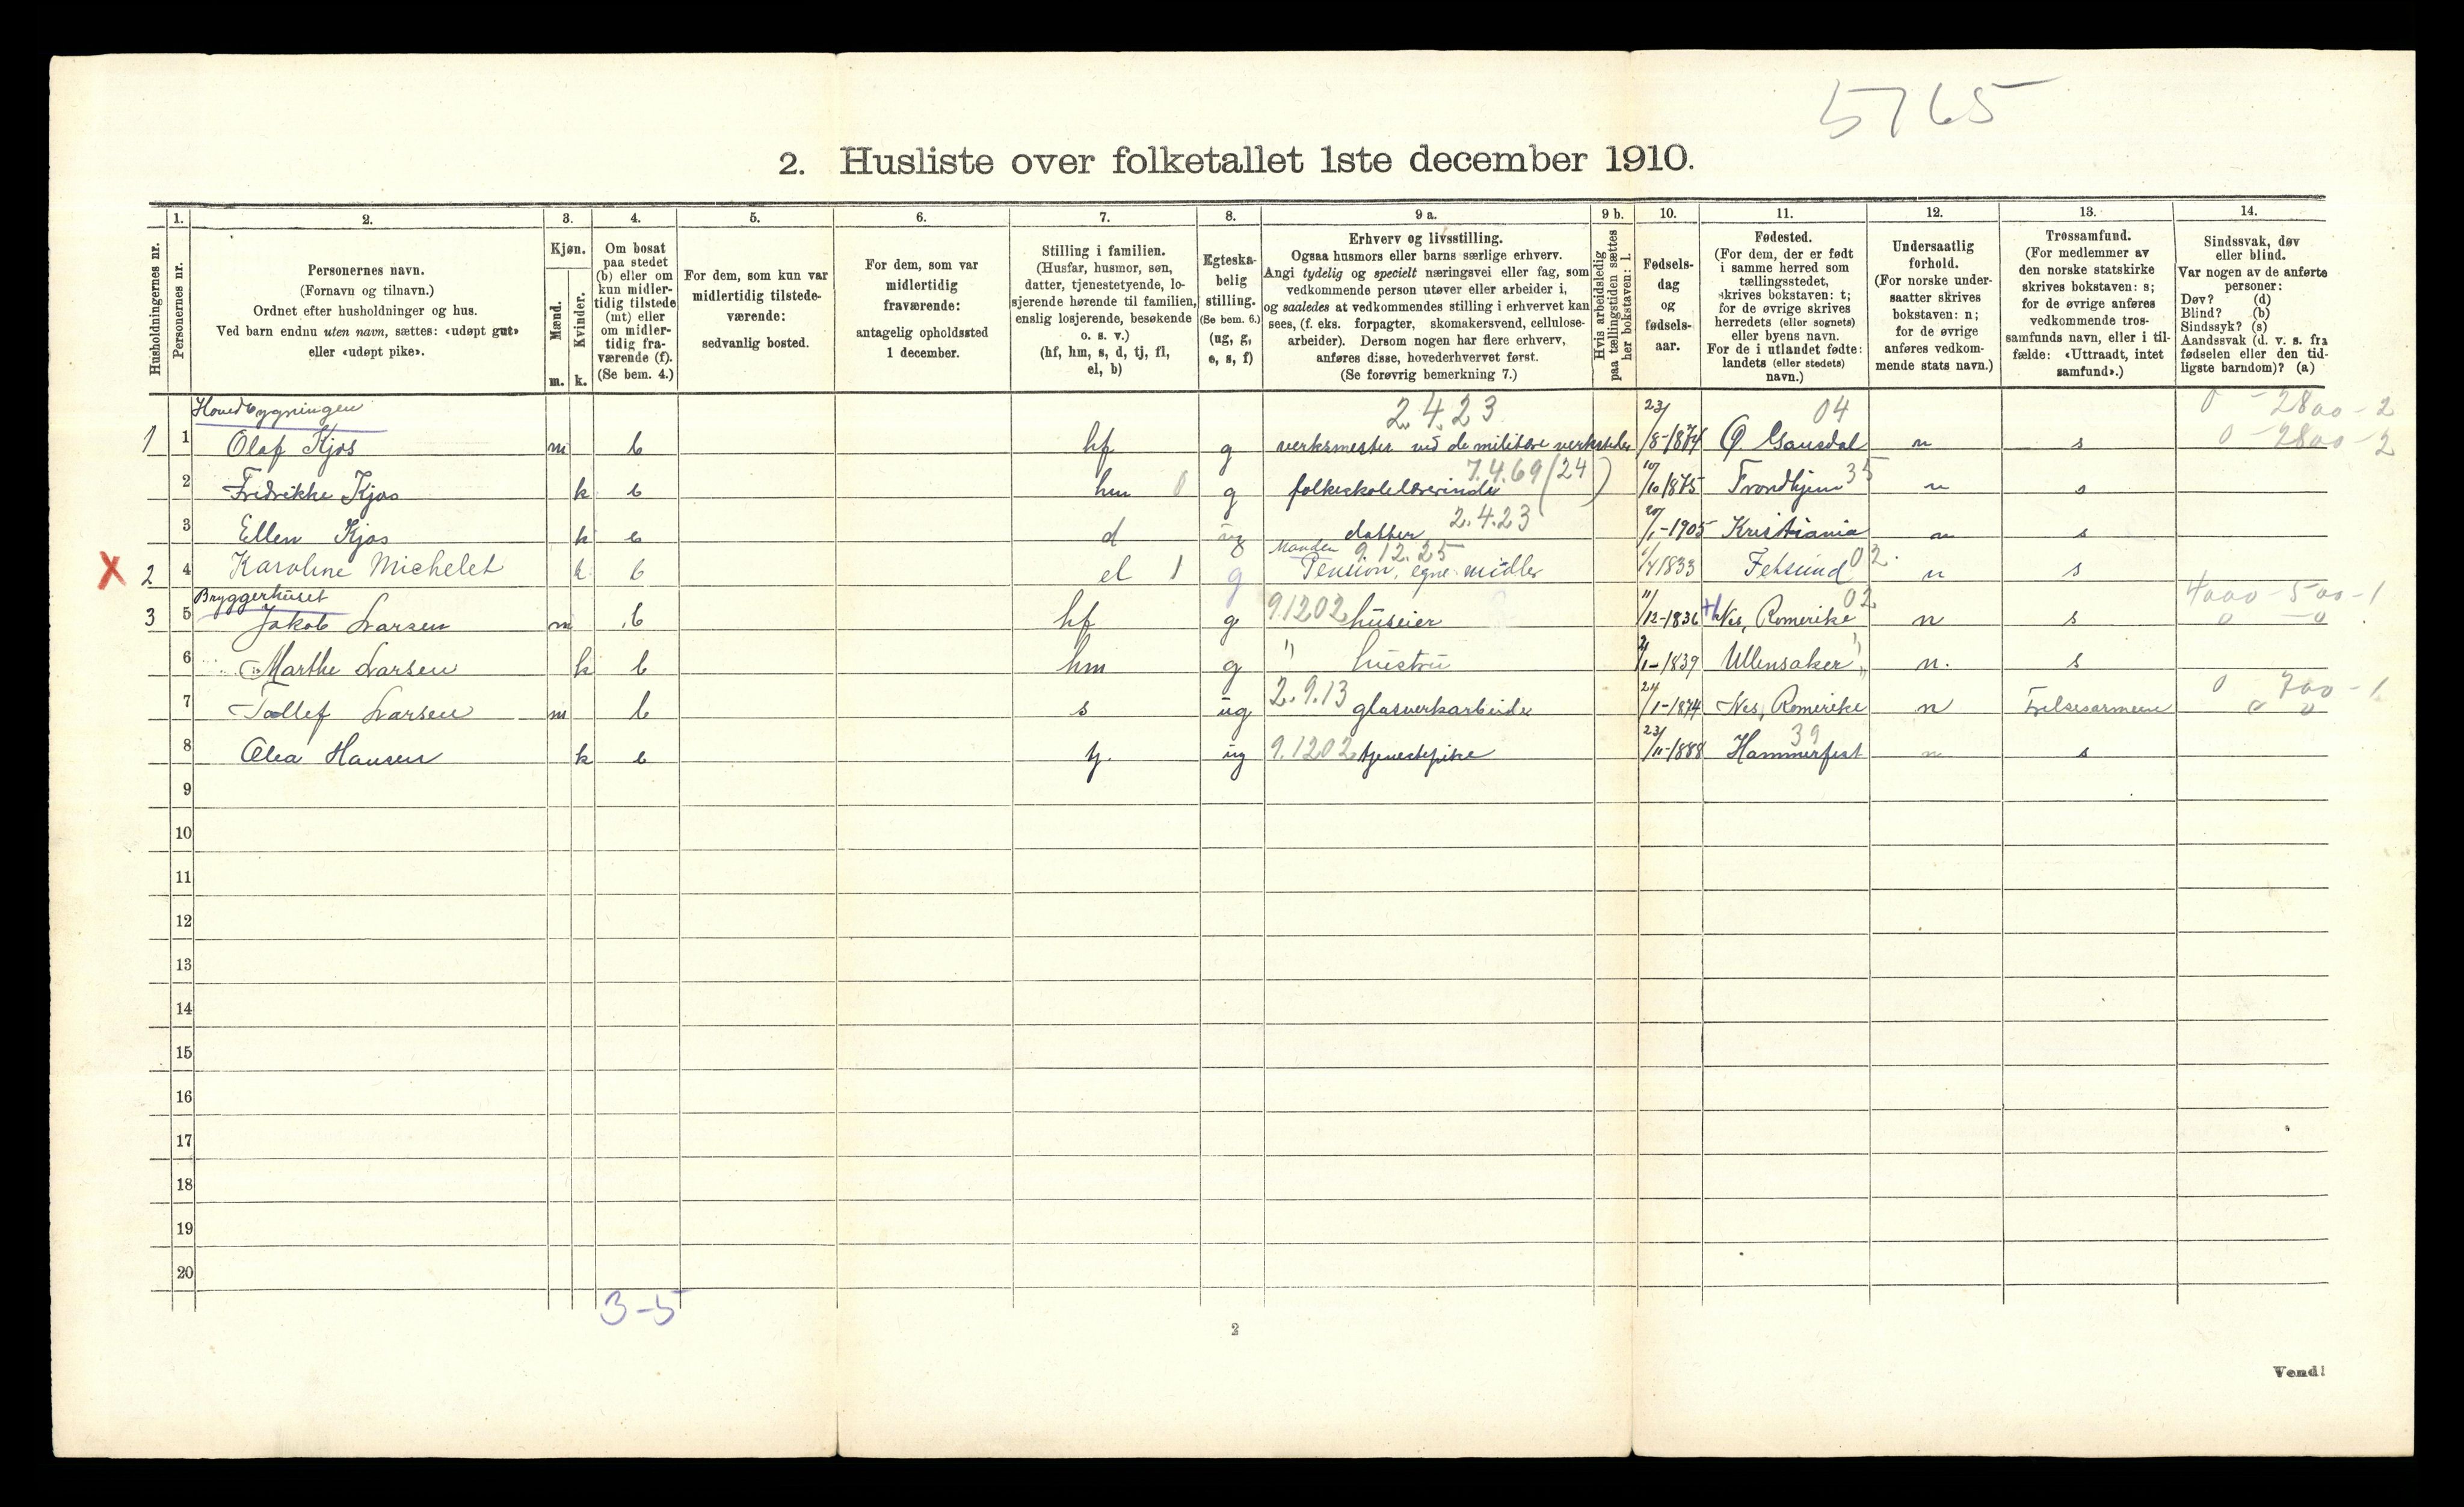 5765
2. Husliste over folketallet 1ste december 1910.
Husholdningernes nr.
1.
Personernes nr.
2.
Personernes navn.
(Fornavn og tilnavn.)
Ordnet efter husholdninger og hus.
Ved barn endnu uten navn, sættes: «udøpt gut»
eller «udøpt pike».
3.
Kjøn.
Mænd.
m.
Kvinder.
k.
4.
Om bosat
paa stedet
(b) eller om
kun midler-
tidig tilstede
(mt) eller
om midler-
tidig fra-
værende (f).
(Se bem. 4.)
5.
For dem, som kun var
midlertidig tilstede-
værende:
sedvanlig bosted.
6.
For dem, som var
midlertidig
fraværende:
antagelig opholdssted
1 december.
7.
Stilling i familien.
(Husfar, husmor, søn,
datter, tjenestetyende, lo-
sjerende hørende til familien,
enslig losjerende, besøkende
o. s. v.)
(hf, hm, s, d, tj, fl,
el, b)
8.
Egteska-
belig
stilling.
(Se bem. 6.)
(ug, g,
e, s, f)
9 a.
Erhverv og livsstilling.
Ogsaa husmors eller barns særlige erhverv.
Angi tydelig og specielt næringsvei eller fag, som
vedkommende person utøver eller arbeider i,
og saaledes at vedkommendes stilling i erhvervet kan
sees, (f. eks. forpagter, skomakersvend, cellulose-
arbeider). Dersom nogen har flere erhverv,
anføres disse, hovederhvervet først.
(Se forøvrig bemerkning 7.)
9 b.
Hvis arbeidsledig
paa tællingstiden sættes
her bokstaven: l.
10.
Fødsels-
dag
og
fødsels-
aar.
11.
Fødested.
(For dem, der er født
i samme herred som
tællingsstedet,
skrives bokstaven: t;
for de øvrige skrives
herredets (eller sognets)
eller byens navn.
For de i utlandet fødte:
landets (eller stedets)
navn.)
12.
Undersaatlig
forhold.
(For norske under-
saatter skrives
bokstaven: n;
for de øvrige
anføres vedkom-
mende stats navn.)
13.
Trossamfund.
(For medlemmer av
den norske statskirke
skrives bokstaven: s;
for de øvrige anføres
vedkommende tros-
samfunds navn, eller i til-
fælde: «Uttraadt, intet
samfund».)
14.
Sindssvak, døv
eller blind.
Var nogen av de anførte
personer:
Døv? (d)
Blind? (b)
Sindssyk? (s)
Aandssvak (d. v. s. fra
fødselen eller den tid-
ligste barndom)? (a)
Hovedbygningen 2.4.23 04 0 - 2800 - 2
1 1 Olaf Kjos m b hf g verksmester ved de militære verksteder 23/8-1874 Ø. Gausdal n s 0 - 2800 - 2
7.4.69 (24) 35
2 Fredrikke Kjos k b hm 0 g folkeskolelærerinde 10/10 1875 Trondhjem n s
2.4.23
3 Ellen Kjos k b d ug datter 20/1-1905 Kristiania n s
Manden 9.12.25 02.
X 2 4 Karoline Michelet k b el 1 g Pension, egne midler 1/4 1833 Fetsund n s
Bryggerhuset 02 4000 - 500 - 1
3 5 Jakob Larsen m b hf g 91202 huseier 11/12-1836 Nes, Romerike n s 0 - 0
6 Marthe Larsen k b hm g " hustru 1-1839 Ullensaker " n. s
2.9.13 0 700 - 1
7 Tollef Larsen m b s ug glasverkarbeider 24/1-1874 Nes, Romerike n Frelsesarmeen 0 0
39
8 Olea Hansen k b tj. ug 9.1202 tjenestepike 23/11-1888 Hammerfest n s
9
10
11
12
13
14
15
16
17
18
19
20
3-5
2
Vend!